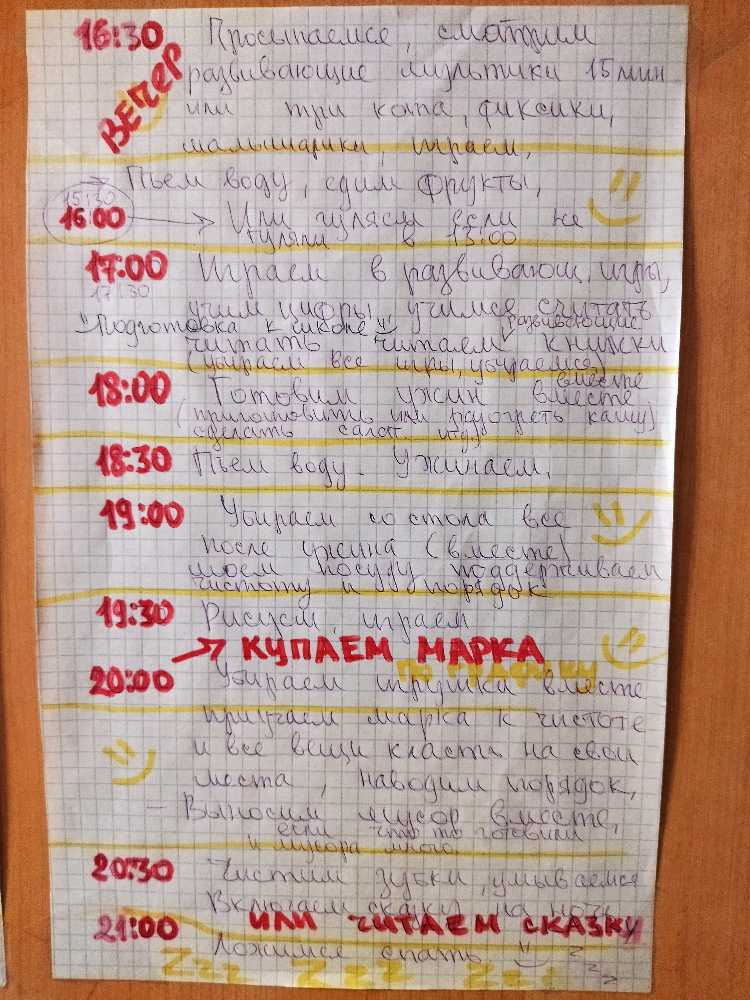 16:30 Просыпаемся, смотрим
ВЕЧЕР
развивающие мультики 15 мин
или три кота, фиксики,
малышарики, играем,
→ Пьем воду, едим фрукты,
15:30
16:00 → Или гуляем если не
гуляли в 15:00
17:00 Играем в развивающ. игры,
17:30
учим цифры, учимся считать
"Подготовка к школе" развивающие
читать читаем книжки
(убираем все игры, убираемся)
вместе
18:00 Готовим ужин вместе
(приготовить или разогреть кашу)
сделать салат. итд)
18:30 Пьем воду. Ужинаем.
19:00 Убираем со стола все
после ужина (вместе)
моем посуду поддерживаем
чистоту и порядок
19:30 Рисуем, играем
→ КУПАЕМ МАРКА
ПО ГРАФИКУ
20:00 Убираем игрушки вместе
приучаем марка к чистоте
и все вещи класть на свои
места, наводим порядок,
– Выносим мусор вместе,
если что то готовили
и мусора много.
20:30 Чистим зубки, умываемся
Включаем сказку на ночь
ИЛИ ЧИТАЕМ СКАЗКУ
21:00 Ложимся спать z z z
Zzz Zzz Zzz